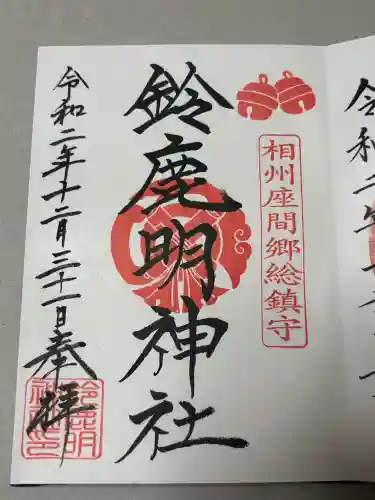 相州座間郷総鎮守
鈴鹿明神社
令和二年十二月三十一日奉拝
鈴鹿明神社
令和二年十